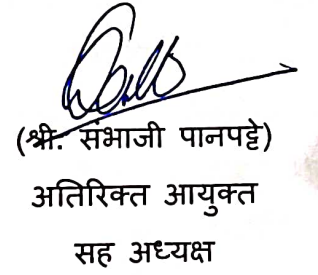 (श्री. संभाजी पानपट्टे)
अतिरिक्त आयुक्त
सह अध्यक्ष